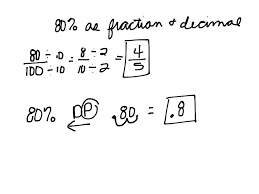 80% as fraction & decimal
80 ÷ 10 / 100 ÷ 10 = 8 ÷ 2 / 10 ÷ 2 = 4 / 5
80% DP .80 = .8